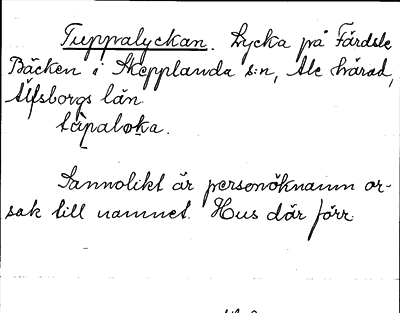 Tuppalyckan. Lycka på Färdsle
Bäcken i Skepplanda s:n, Ale härad,
Älfsborgs län.
tàpalo̱ka.
Sannolikt är personöknamn or-
sak till namnet. Hus där förr.